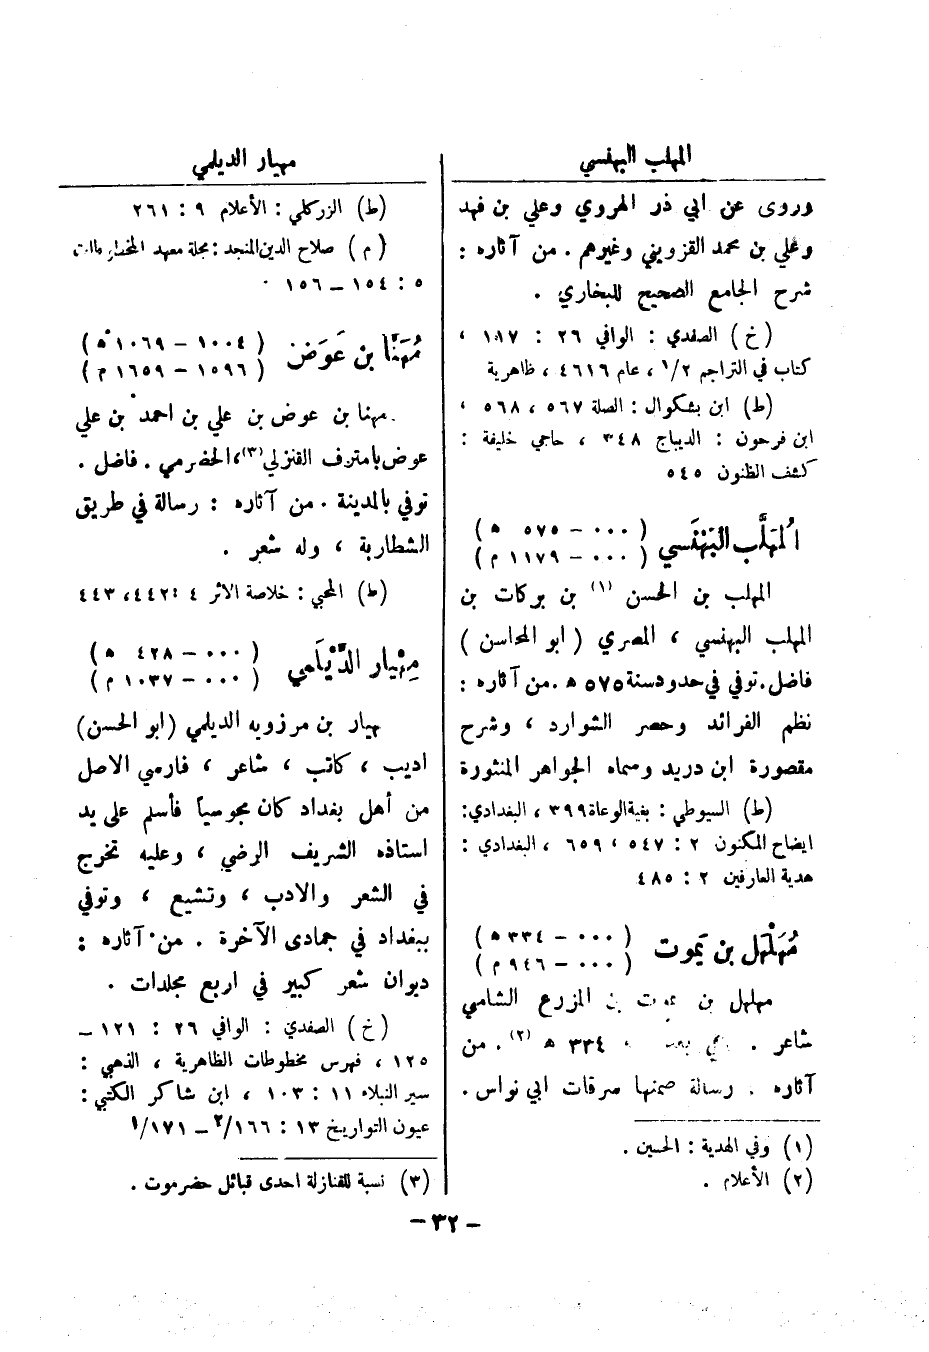 المهلب البهنسي
وروى عن ابي ذر الهروي وعلي بن فهد
وعلي بن محمد القزويني وغيرهم . من آثاره :
شرح الجامع الصحيح للبخاري .
(خ) الصفدي : الوافي ٢٦ : ١٨٧ ،
كتاب في التراجم ١/٢ ، عام ٤٦١٦ ، ظاهرية
(ط) ابن بشكوال : الصلة ٥٦٧ ، ٥٦٨ ،
ابن فرحون : الديباج ٣٤٨ ، حاجي خليفة :
كشف الظنون ٥٤٥
المُهَلَّب البَهْنَسي
(٠٠٠ – ٥٧٥ ه)
(٠٠٠ – ١١٧٩ م)
المهلب بن الحسن (١) بن بركات بن
المهلب البهنسي ، المصري (ابو المحاسن)
فاضل . توفي في حدود سنة ٥٧٥ ه . من آثاره :
نظم الفرائد وحصر الشوارد ، وشرح
مقصورة ابن دريد وسماه الجواهر المنثورة
(ط) السيوطي : بغية الوعاة ٣٩٩ ، البغدادي :
ايضاح المكنون ٢ : ٥٤٧ ، ٦٥٩ ، البغدادي :
هدية العارفين ٢ : ٤٨٥
مُهَلْهِل بن يَموت
(٠٠٠ – ٣٣٤ ه)
(٠٠٠ – ٩٤٦ م)
مهلهل بن يموت بن المزرع الشامي
شاعر . ٣٣٤ ه (٢) . من
آثاره . رسالة ضمنها سرقات ابي نواس .
(١) وفي الهدية : الحسين .
(٢) الأعلام .
مهيار الديلمي
(ط) الزركلي : الأعلام ٩ : ٢٦١
(م) صلاح الدين المنجد : مجلة معهد المخطوطات
٥ : ١٥٤ – ١٥٦
مُهَنَّا بن عَوَض
(١٠٠٤ – ١٠٦٩ ه)
(١٥٩٦ – ١٦٥٩ م)
مهنا بن عوض بن علي بن احمد بن علي
عوض بامتزف القنزلي (٣) ، الحضرمي . فاضل .
توفي بالمدينة . من آثاره : رسالة في طريق
الشطارية ، وله شعر .
(ط) المحبي : خلاصة الاثر ٤ : ٤٤٢ ، ٤٤٣
مِهْيار الدَّيْلَمي
(٠٠٠ – ٤٢٨ ه)
(٠٠٠ – ١٠٣٧ م)
مهيار بن مرزويه الديلمي (ابو الحسن)
اديب ، كاتب ، شاعر ، فارسي الاصل
من أهل بغداد كان مجوسياً فأسلم على يد
استاذه الشريف الرضي ، وعليه تخرج
في الشعر والادب ، وتشيع ، وتوفي
ببغداد في جمادى الآخرة . من آثاره :
ديوان شعر كبير في اربع مجلدات .
(خ) الصفدي : الوافي ٢٦ : ١٢١ –
١٢٥ ، فهرس مخطوطات الظاهرية ، الذهبي :
سير النبلاء ١١ : ١٠٣ ، ابن شاكر الكتبي :
عيون التواريخ ١٣ : ١٦٦/٢ – ١٧١/١
(٣) نسبة للقنازلة احدى قبائل حضرموت .
– ٣٢ –